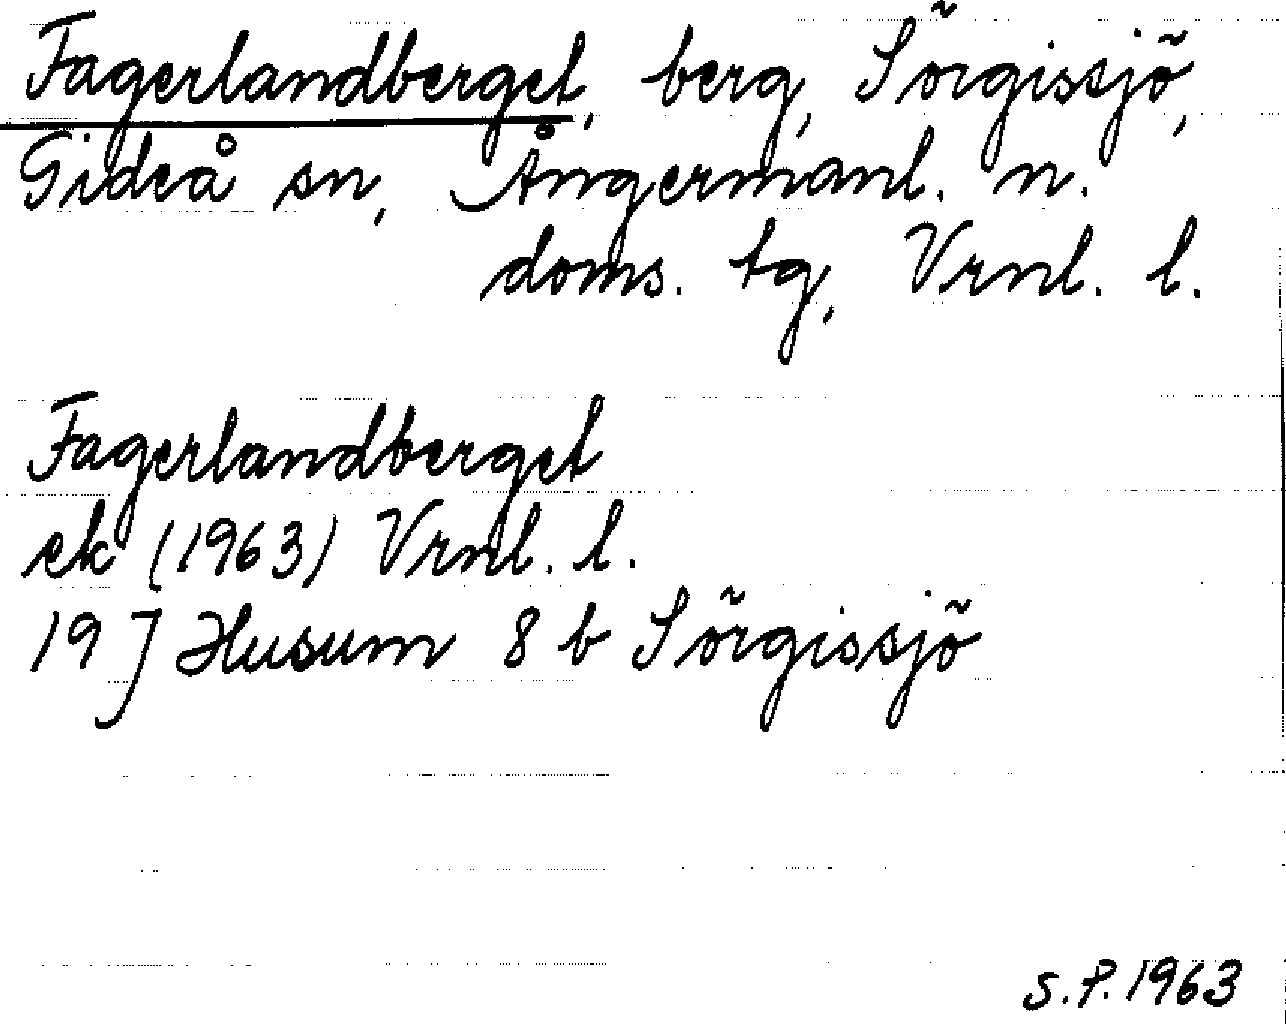 Fagerlandberget, berg, Sörgissjö,
Gideå sn, Ångermanl. n.
doms. tg, Vrnl. l.
Fagerlandberget
ek (1963) Vrnl. l.
19 J Husum 8 b Sörgissjö
S.P. 1963